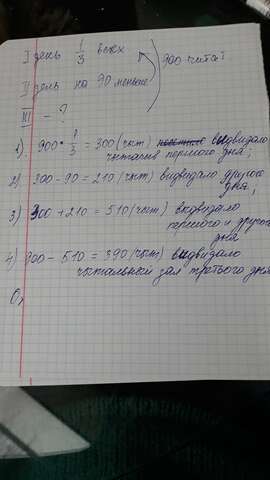 I день 1/3 всех
II день на 90 меньше
900 читат
III - ?
1). 900 · 1/3 = 300 (чит) відвідало
читачів першого дня;
2) 300 - 90 = 210 (чит) відвідало другого
дня;
3) 300 + 210 = 510 (чит) відвідало
першого и другого
дня
4) 900 - 510 = 390 (чит) відвідало
читальний зал третього дня